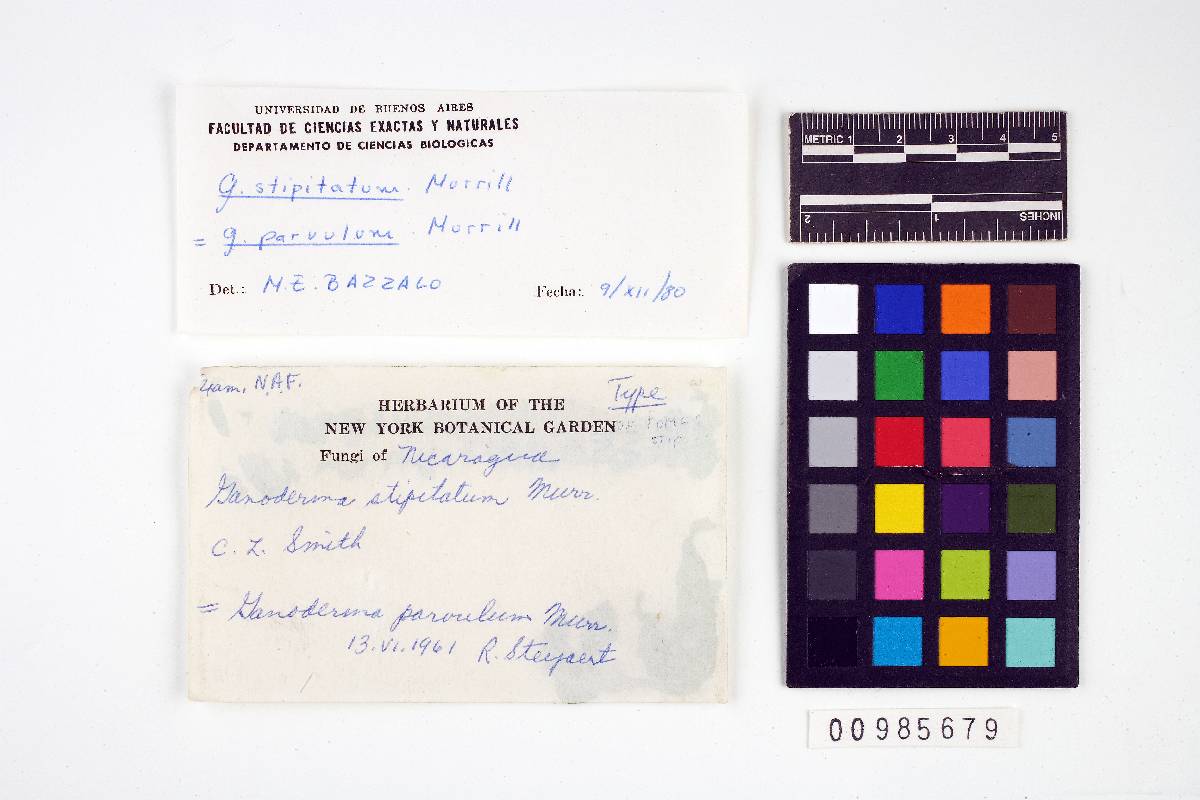 UNIVERSIDAD DE BUENOS AIRES
FACULTAD DE CIENCIAS EXACTAS Y NATURALES
DEPARTAMENTO DE CIENCIAS BIOLOGICAS
G. stipitatum. Murrill
= G. parvulum. Murrill
Det.: M.E. BAZZALO Fecha: 9/XII/80
METRIC 1 2 3 4 5
2 1 INCHES
N.A.F.
Type
HERBARIUM OF THE
NEW YORK BOTANICAL GARDEN
Fungi of Nicaragua
Ganoderma stipitatum Murr.
C. L. Smith
= Ganoderma parvulum Murr.
13.VI.1961 R. Steyaert
00985679